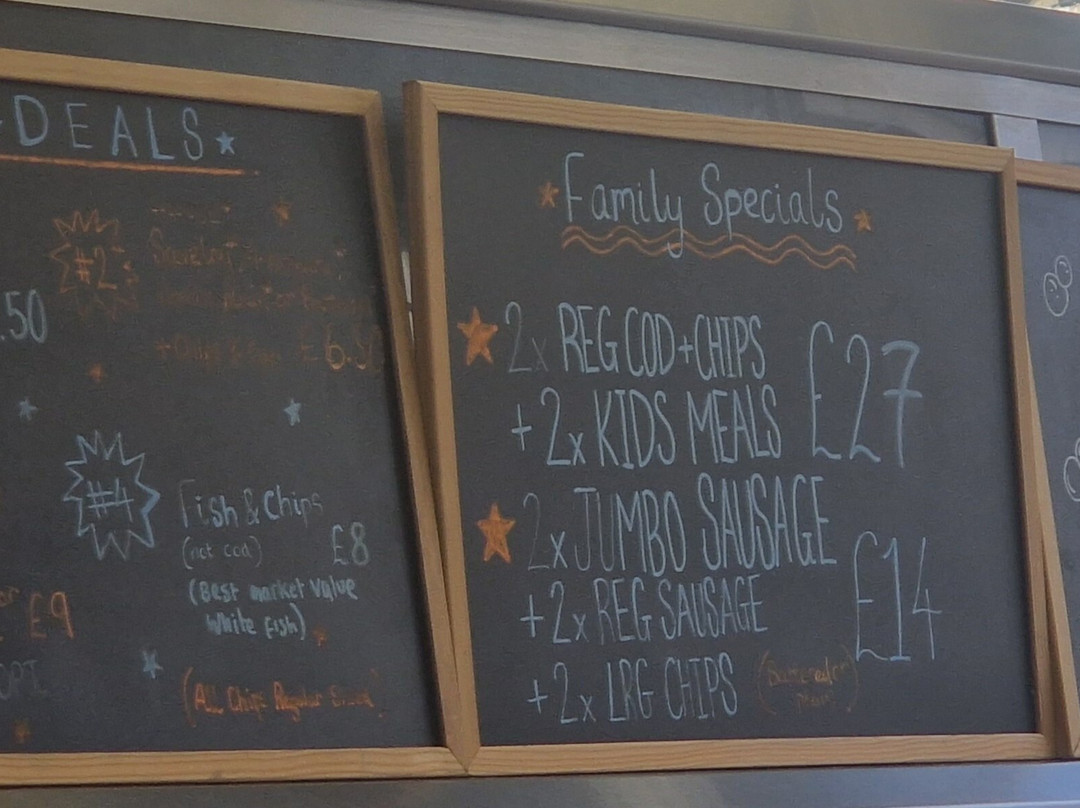 DEALS
#2
.50
£6.50
#4
Fish & Chips
(not cod)
£8
(Best market value
white fish)
£9
(All Chips Regular
Family Specials
2x REG COD+CHIPS
+ 2x KIDS MEALS
£27
2x JUMBO SAUSAGE
+ 2x REG SAUSAGE
£14
+ 2x LRG CHIPS